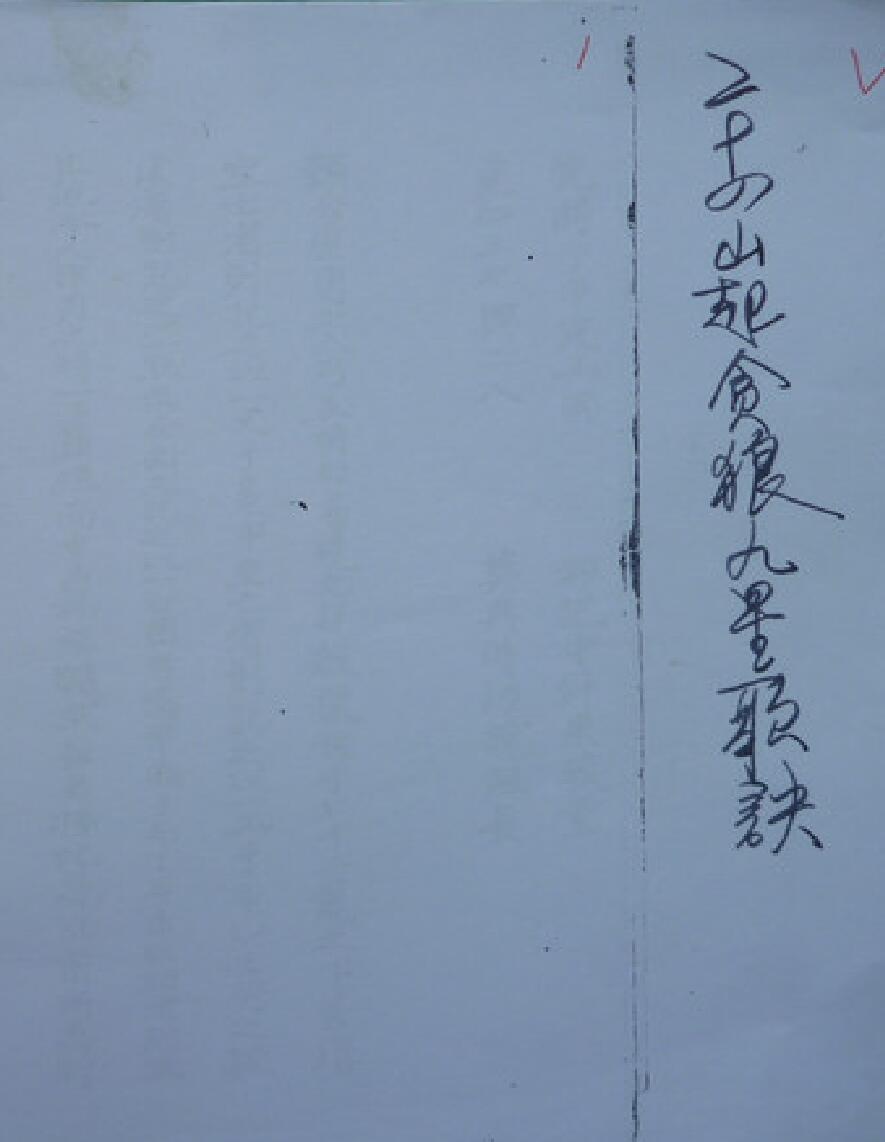 二十四山起贪狼九星歌訣